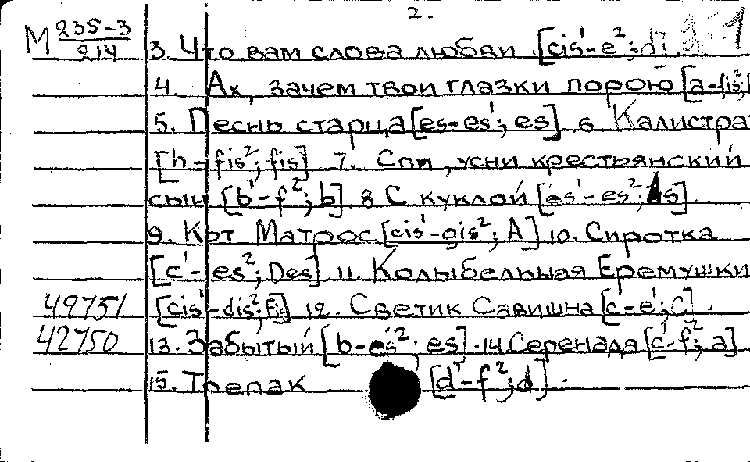 2.
М 235-3/214
3. Что вам слова любви [cis'-e²;
4. Ах, зачем твои глазки порою [a-fis²;
5. Песнь старца [es-es'; es] 6. Калистра
[h-fis²; fis] 7. Спи, усни крестьянский
сын [b'-f²; b] 8. С куклой [es'-es²; As].
9. Кот Матрос [cis'-gis²; A] 10. Сиротка
[c'-es²; Des] 11. Колыбельная Еремушки
49751 [cis'-dis²; 12. Светик Савишна [c-e'; C].
42750 13. Забытый [b-es²; es]. 14 Серенада [c'-f²; a]
15. Трепак [d'-f²; d].